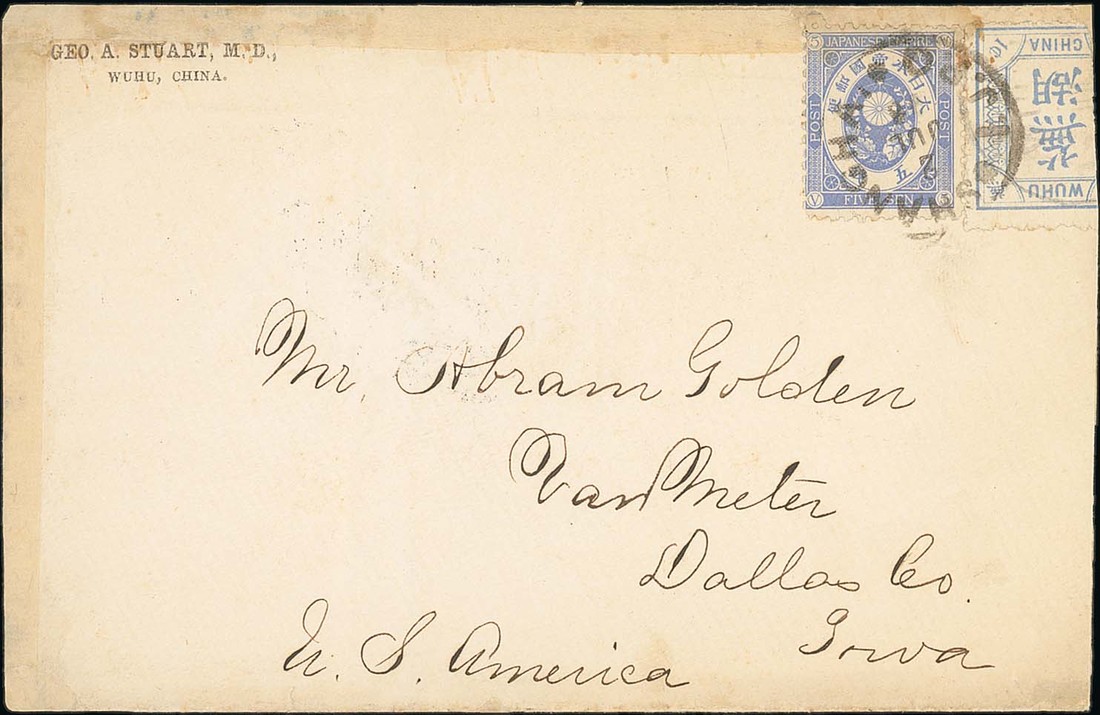 GEO. A. STUART, M. D.,
WUHU, CHINA.
5 JAPANESE EMPIRE V
大日本帝國郵便
POST
POST
五
V FIVE SEN 5
JUL
2
1c
CHINA
蕪湖
WUHU
Mr. Abram Golden
Van Meter
Dallas Co.
Iowa
U. S. America